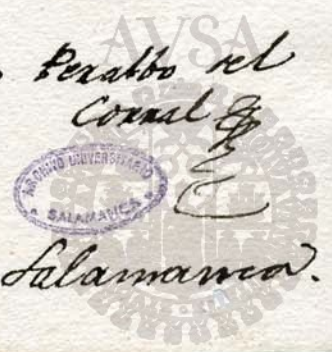 AVSA
Peralbo del
Corral
ARCHIVO UNIVERSITARIO
SALAMANCA
Salamanca.